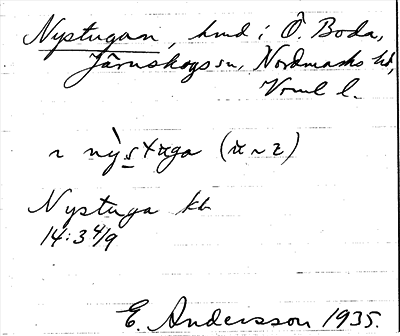 Nystugan, hmd i Ö. Boda,
Järnskogs sn, Nordmarks hd,
Vrml l.
Nystuga kb
14:3 4/9
E. Andersson 1935.